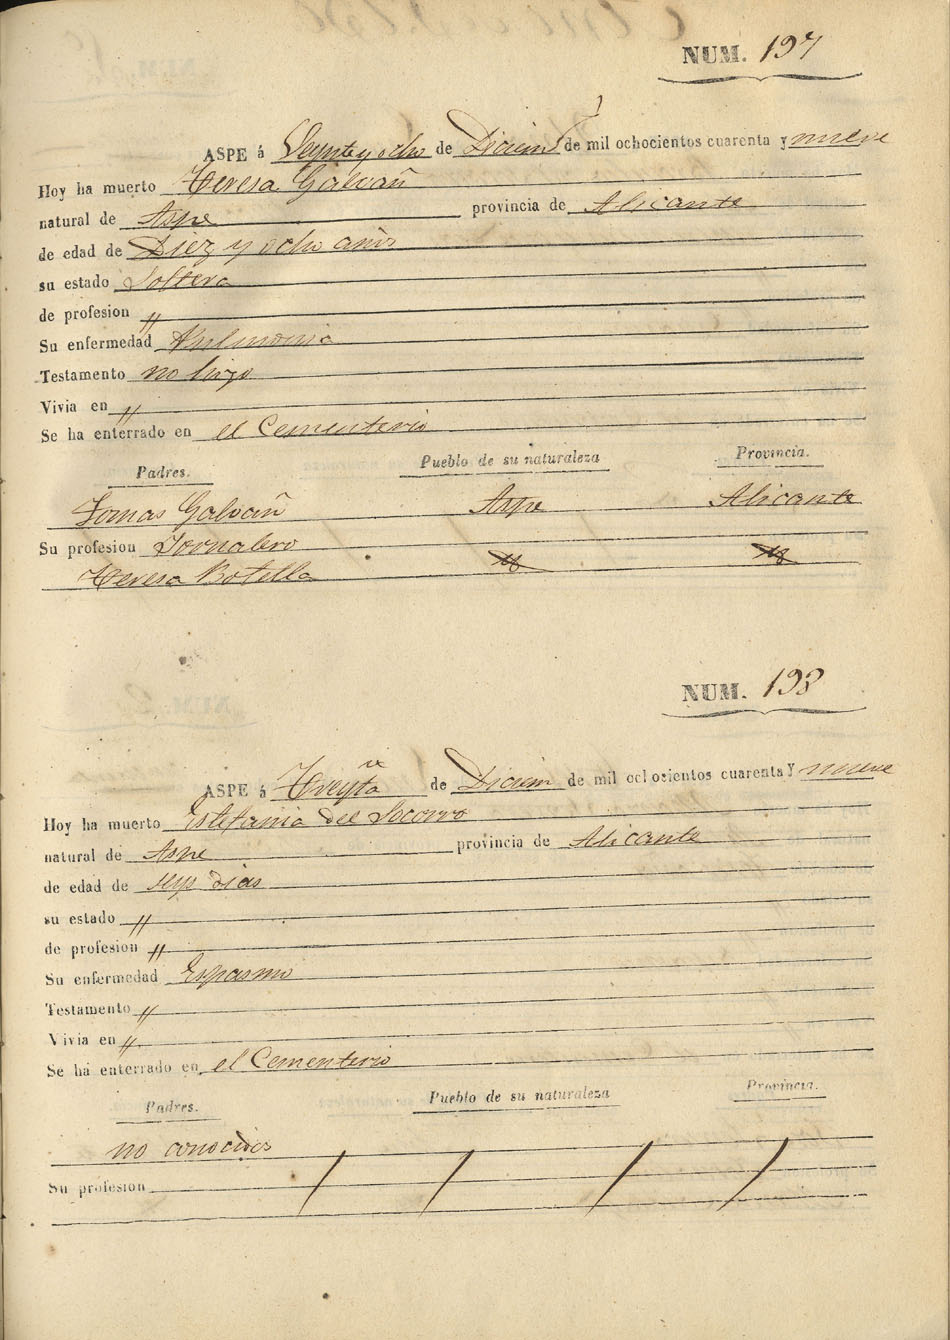 NUM. 197
ASPE á Veynte y ocho de Diciem de mil ochocientos cuarenta y nueve
Hoy ha muerto Teresa Galvañ
natural de Aspe provincia de Alicante
de edad de Diez y ocho años
su estado Soltera
de profesion "
Su enfermedad Pulmonia
Testamento no hizo
Vivia en "
Se ha enterrado en el Cementerio
Padres. Pueblo de su naturaleza Provincia.
Tomas Galvañ Aspe Alicante
Su profesion Jornalero
Teresa Botella
NUM. 198
ASPE á Treynta de Diciem de mil ochocientos cuarenta y nueve
Hoy ha muerto Estefania del Socorro
natural de Aspe provincia de Alicante
de edad de seys dias
su estado "
de profesion "
Su enfermedad Espasmo
Testamento "
Vivia en "
Se ha enterrado en el Cementerio
Padres. Pueblo de su naturaleza Provincia.
no conocidos
Su profesion